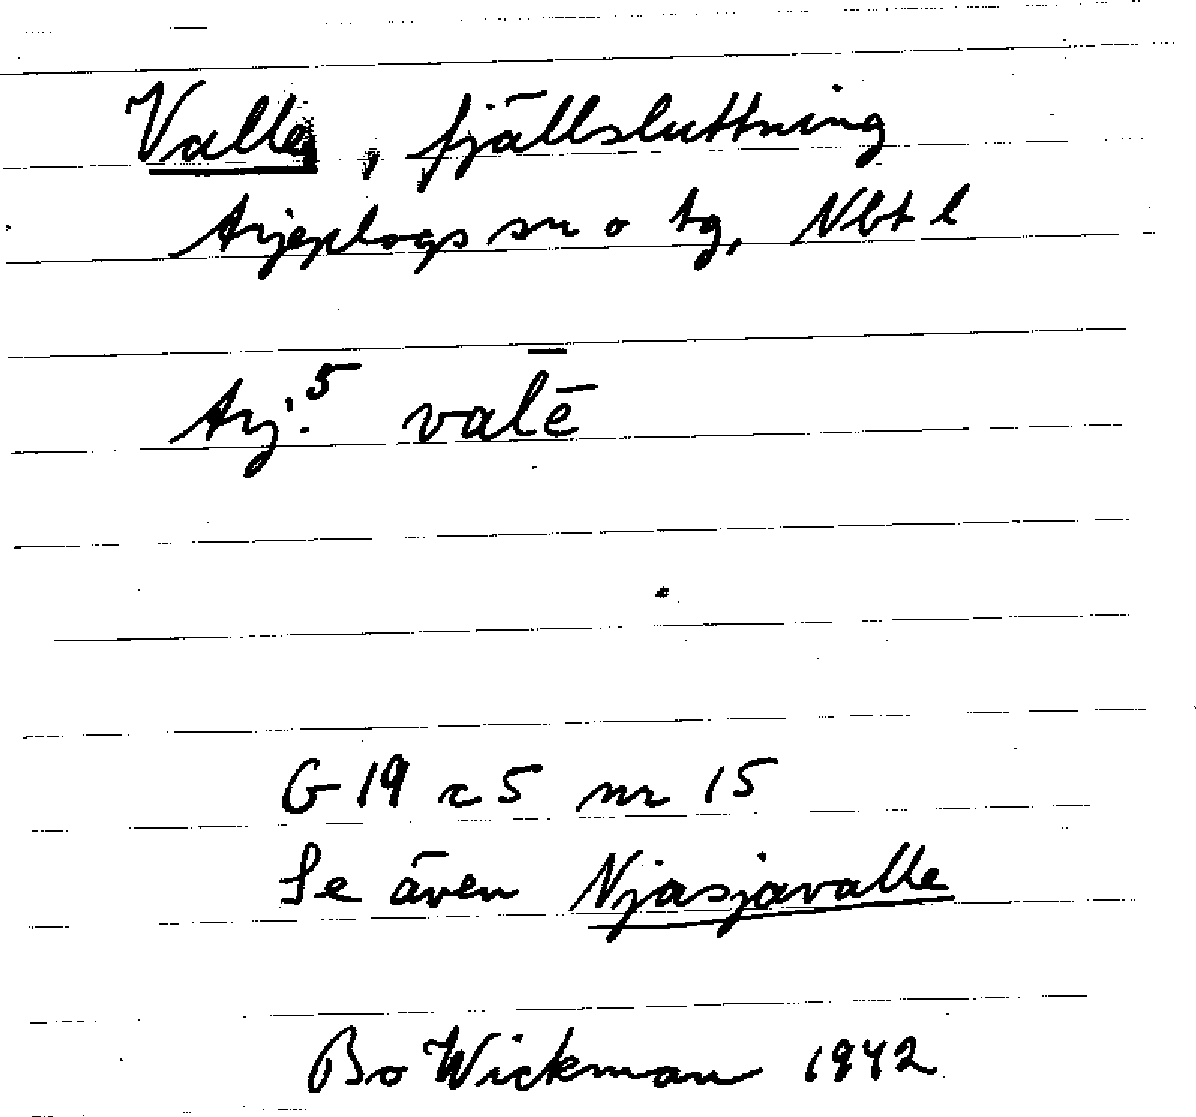 Valle, fjällsluttning
Arjeplogs sn o tg, Nbt l
Arj:⁵ val̄ē
G 19 c 5 nr 15
Se även Njasjavalle
Bo Wickman 1942